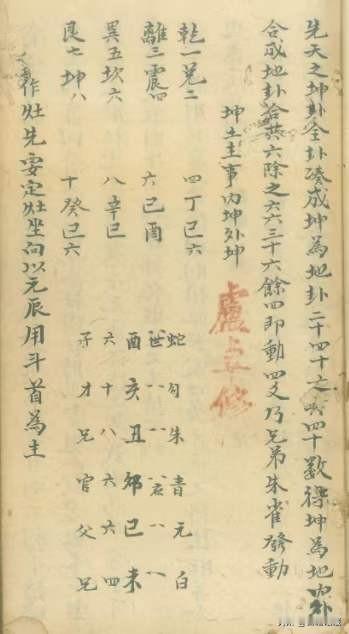 先天之坤卦全卦湊成坤為地卦二十四十之共四十數 坤為地內外
合成地卦拾共六除之六六三十六餘四即動四爻乃兄弟朱雀發動
坤土主事內坤外坤
盧 修
乾一兌二 四丁巳六 蛇勾朱青元白
離三震四 六己酉 世 應
巽五坎六 八辛巳 酉亥丑卯巳未
六十八六六四
艮七坤八 十癸巳六 子才兄官父兄
作灶先要定灶坐向以元辰用斗首為主